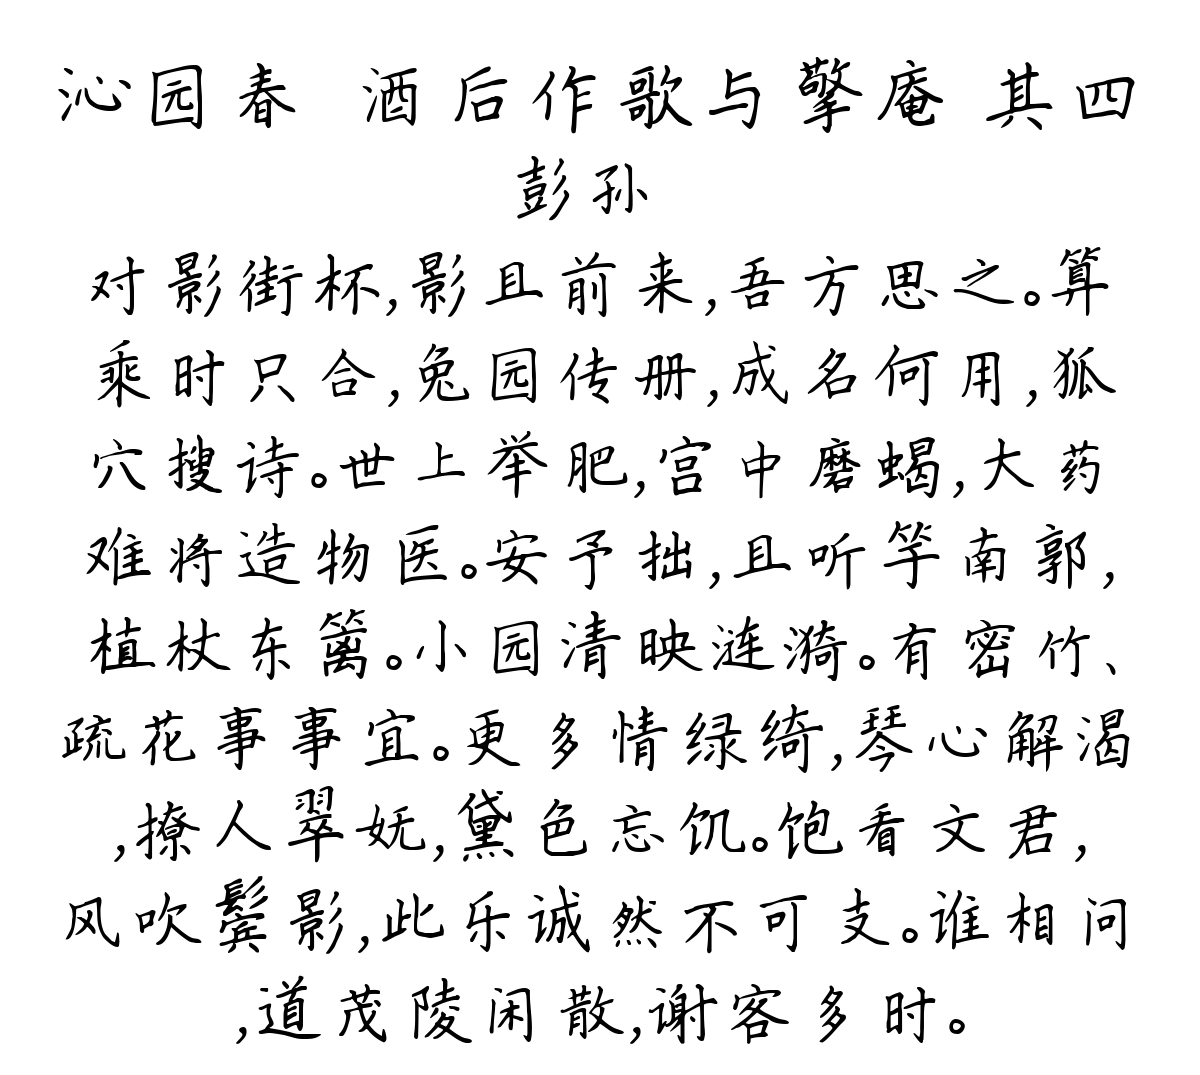 沁园春 酒后作歌与擎庵 其四
彭孙
对影街杯,影且前来,吾方思之。算
乘时只合,兔园传册,成名何用,狐
穴搜诗。世上举肥,宫中磨蝎,大药
难将造物医。安予拙,且听竽南郭,
植杖东篱。小园清映涟漪。有密竹、
疏花事事宜。更多情绿绮,琴心解渴
,撩人翠妩,黛色忘饥。饱看文君,
风吹鬓影,此乐诚然不可支。谁相问
,道茂陵闲散,谢客多时。